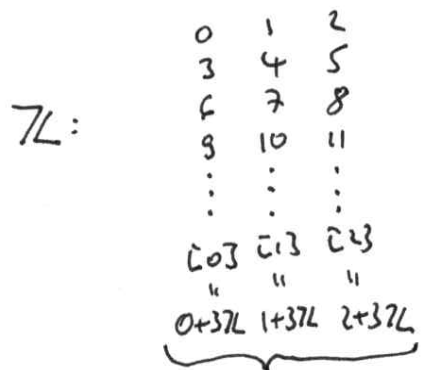 0 1 2
3 4 5
6 7 8
ℤ:
9 10 11
⋮ ⋮ ⋮
[0] [1] [2]
" " "
0+3ℤ 1+3ℤ 2+3ℤ